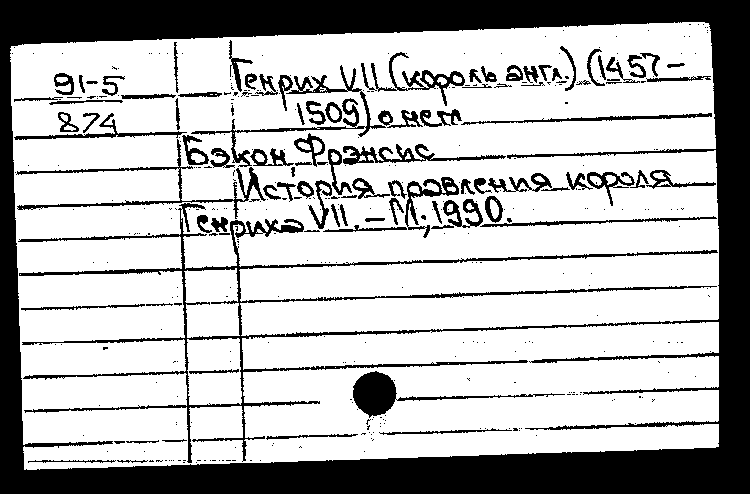 91-5
874
Генрих VII (король англ.) (1457-
1509) о нем
Бэкон, Фрэнсис
История правления короля
Генриха VII. – М., 1990.